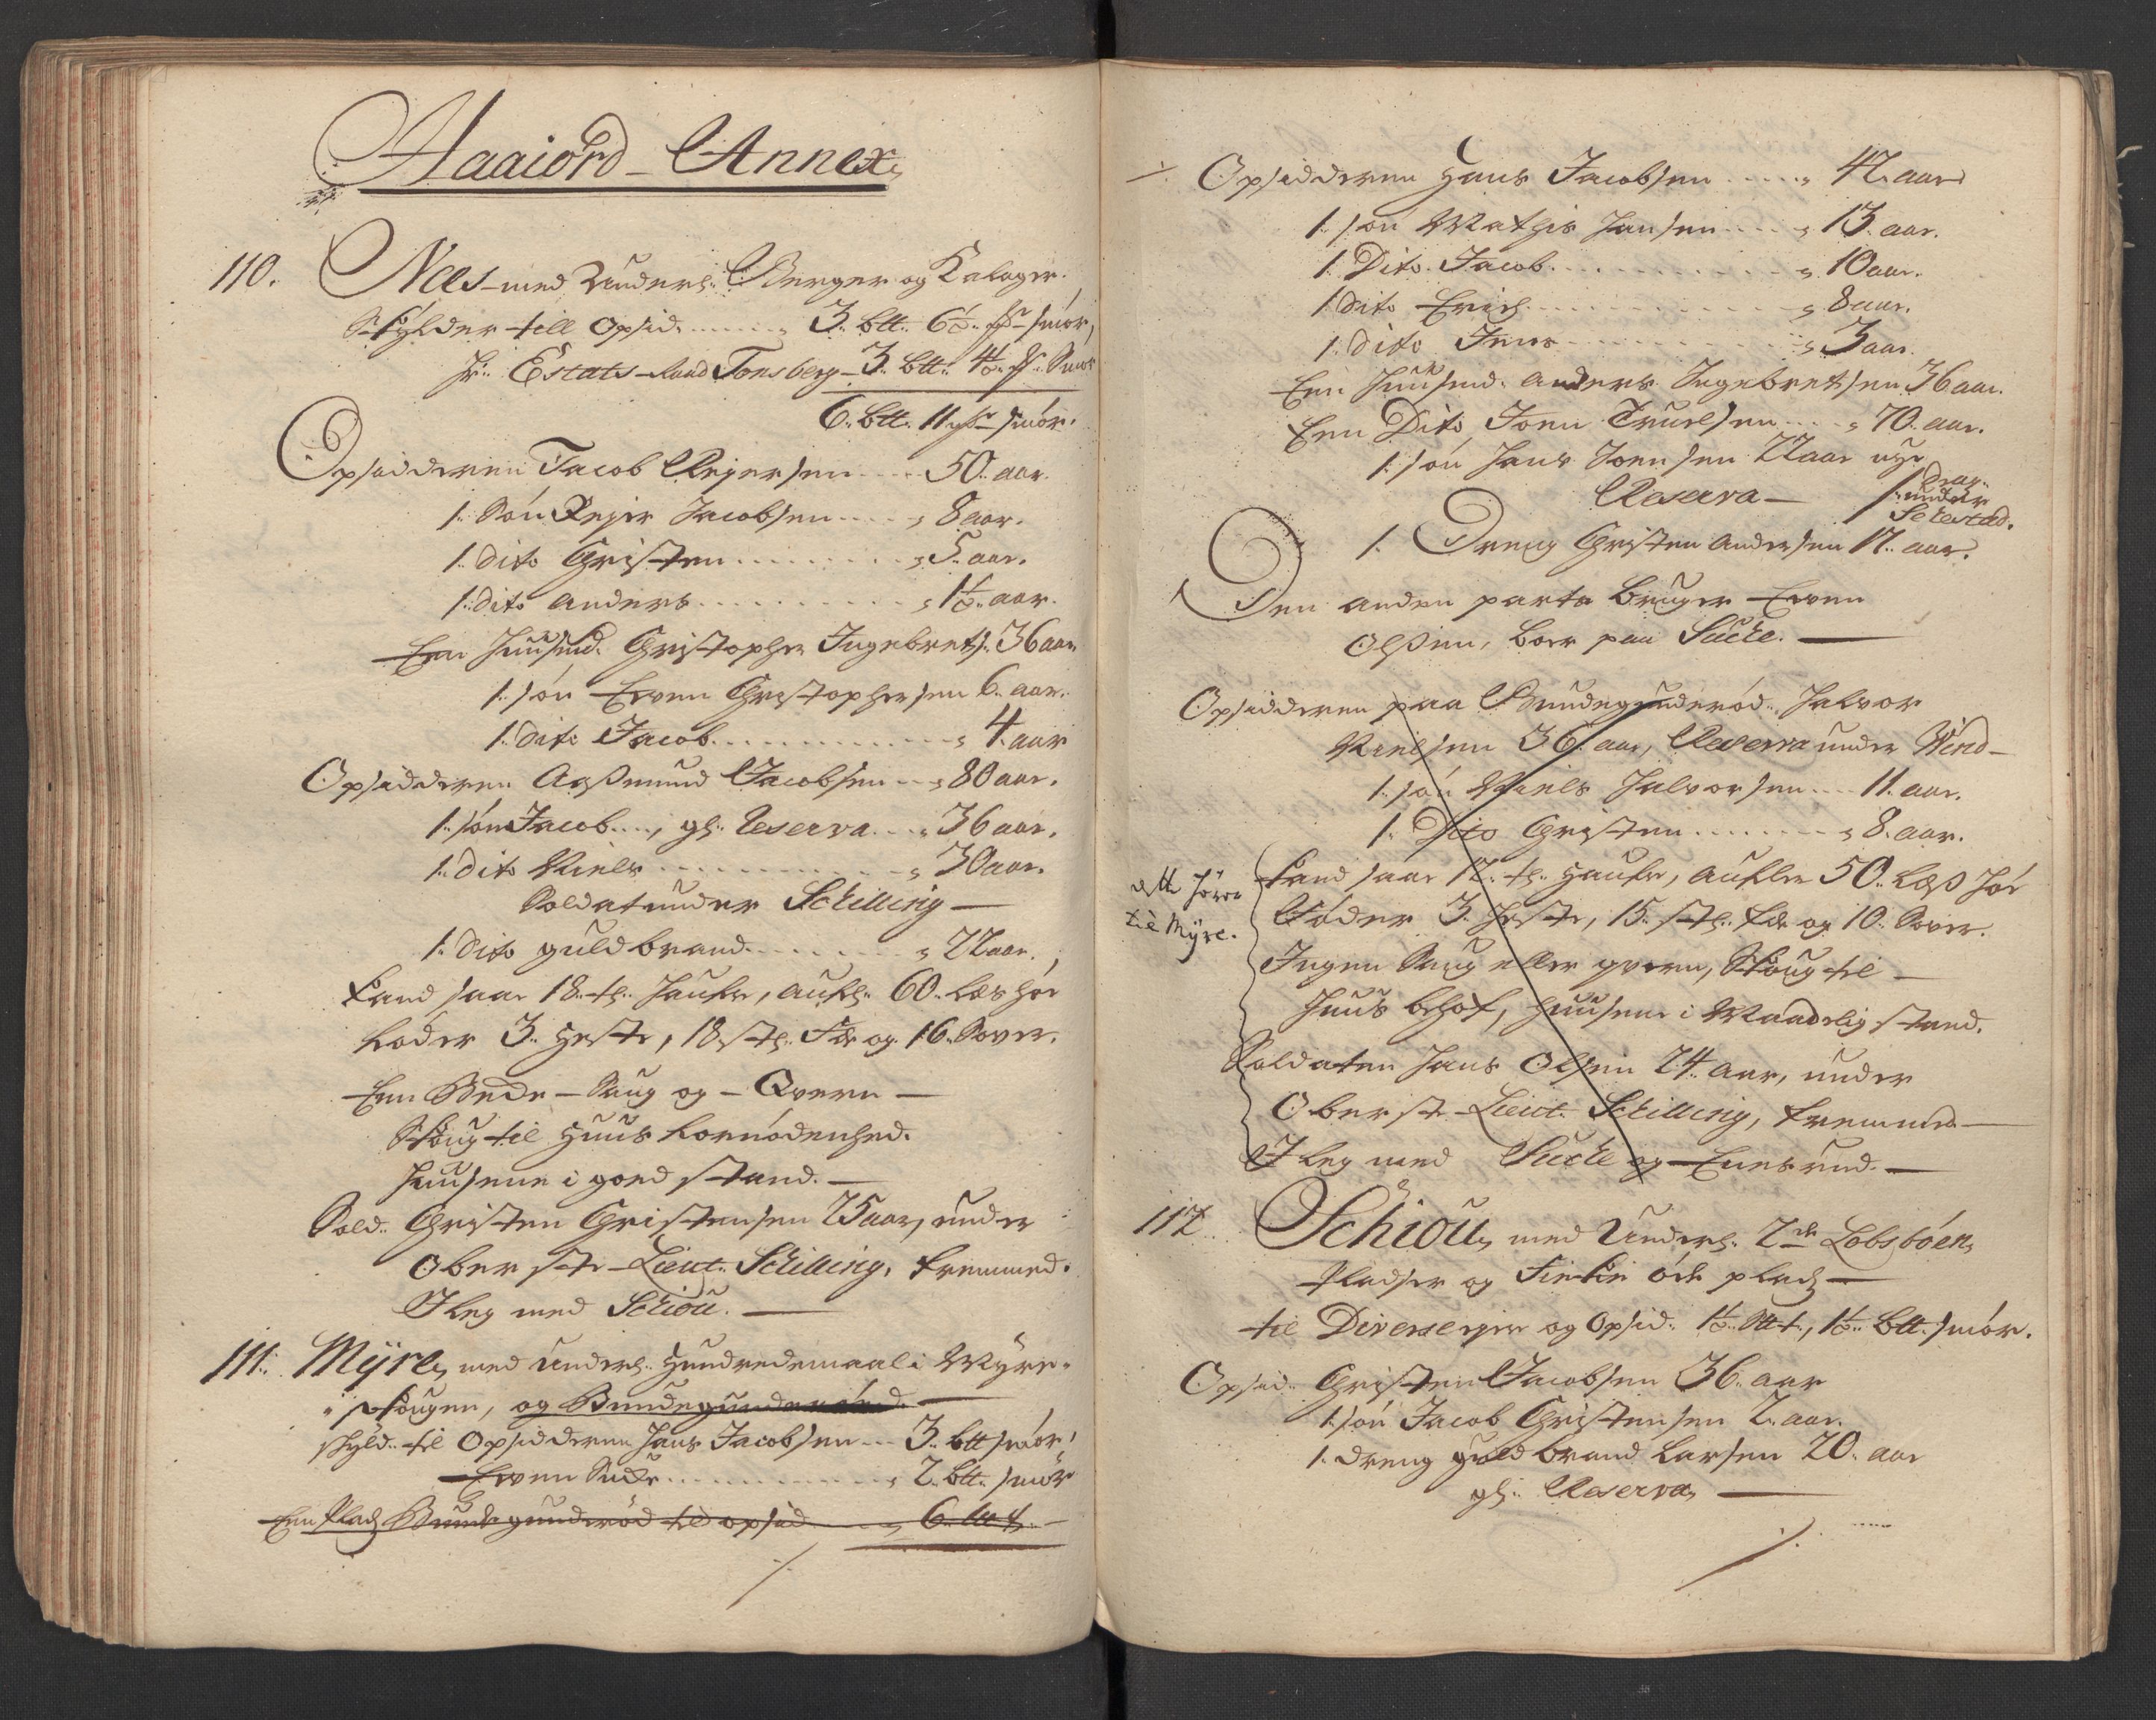 Aaaiord - Annex,
110. Næs med Underl: Berger og Kalager.
Skÿlder till Opsid. 3. btt. 6½ smör,
Hr. Estats-Raad Tonsberg 3. btt. 4½ Smör
6. btt. 11 smör.
Opsidderen Jacob Rejersen 50. aar.
1. Sön Rejer Jacobsen 8 aar.
1. dito Christen 5. aar.
1. dito Anders 1½ aar.
Een Huusmd. Christopher Ingebrets. 36 aar
1. sön Even Christophersen 6. aar.
1. dito Jacob 4. aar
Opsidderen Aasmund Jacobsen 80 aar.
1. sön Jacob, gl: Reserva 36 aar.
1. dito Niels 30 aar.
Soldat under Schilling —
1. dito guldbrand 22 aar.
Kand saae 18. t. Haufre, aufl. 60. læs höe
föder 3. Heste, 18 st. Fæ og 16. Sover.
Een Bede-Saug og - Qvern —
Skoug til Huus fornödenhed.
Huusene i goed stand. —
Sold. Christen Christensen 25 aar, under
Oberste-Lieut. Schilling, fremmed.
I leg med Schiou. —
111. Mÿre, med Underl: Hundredemaal i Mÿre-
skougen, og Bundegunderöed. —
skÿld. til Opsidderen Hans Jacobsen 3. btt smör,
Even Sucke 2. btt. smör
Een Plads Bundegunderöd til opsid. 6.
./.
./. Opsidderen Hans Jacobsen 42. aar
1. sön Mathis Hansen 13. aar.
1. Dito Jacob 10 aar.
1. dito Erich 8 aar.
1. dito Jens 3 aar.
Een Huusmd. Anders Ingebretsen 36 aar.
Een Dito Joen Truelsen 70. aar.
1. sön Hans Joensen 22 aar nÿe
Reserva — Drag.
under
Sehested.
1. Dreng Christen Andersen 17. aar.
Den anden parte bruger Even
Olsen, boer paa Sucke. —
Opsidderen paa Bundegunderöd, Halvor
Nielsen 36. aar, Reserva under Wind-
1. sön Niels Halvorsen 11. aar.
1. Dito Christen 8. aar.
dette hörer
til Mÿre.
Kand saae 12. t. Haufre, Aufler 50. læs höe
Föder 3. Heste, 15. st. fæ og 10. Sover.
Ingen Saug eller qvern, Skoug til —
Huus behof, Huusene i Maadelig stand.
Soldaten Hans Olsen 24. aar, under
Oberste-Lieut. Schilling, fremmed —
I leg med Sucke og Enesrud. —
112. Schiou, med Underl: 2de Lobsböen,
Pladser og Finkie öde plads —
til Diverse ejer og Opsid. 1½ 1½ btt. smör.
Opsid. Christen Jacobsen 36. aar
1. sön Jacob Christensen 2. aar.
1. dreng guldbrand Larsen 20. aar
gl: Reserva, —
./.